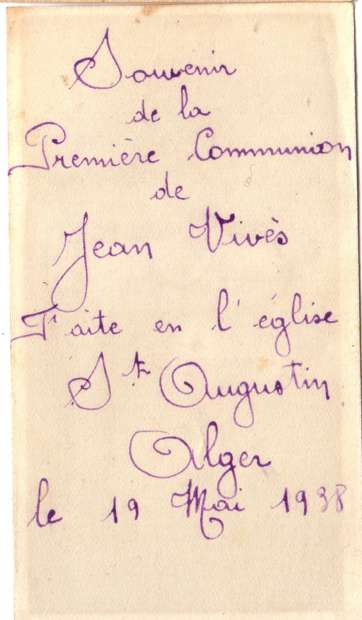 Souvenir
de la
Première Communion
de
Jean Vivès
Faite en l'église
St Augustin
Alger
le 19 Mai 1938